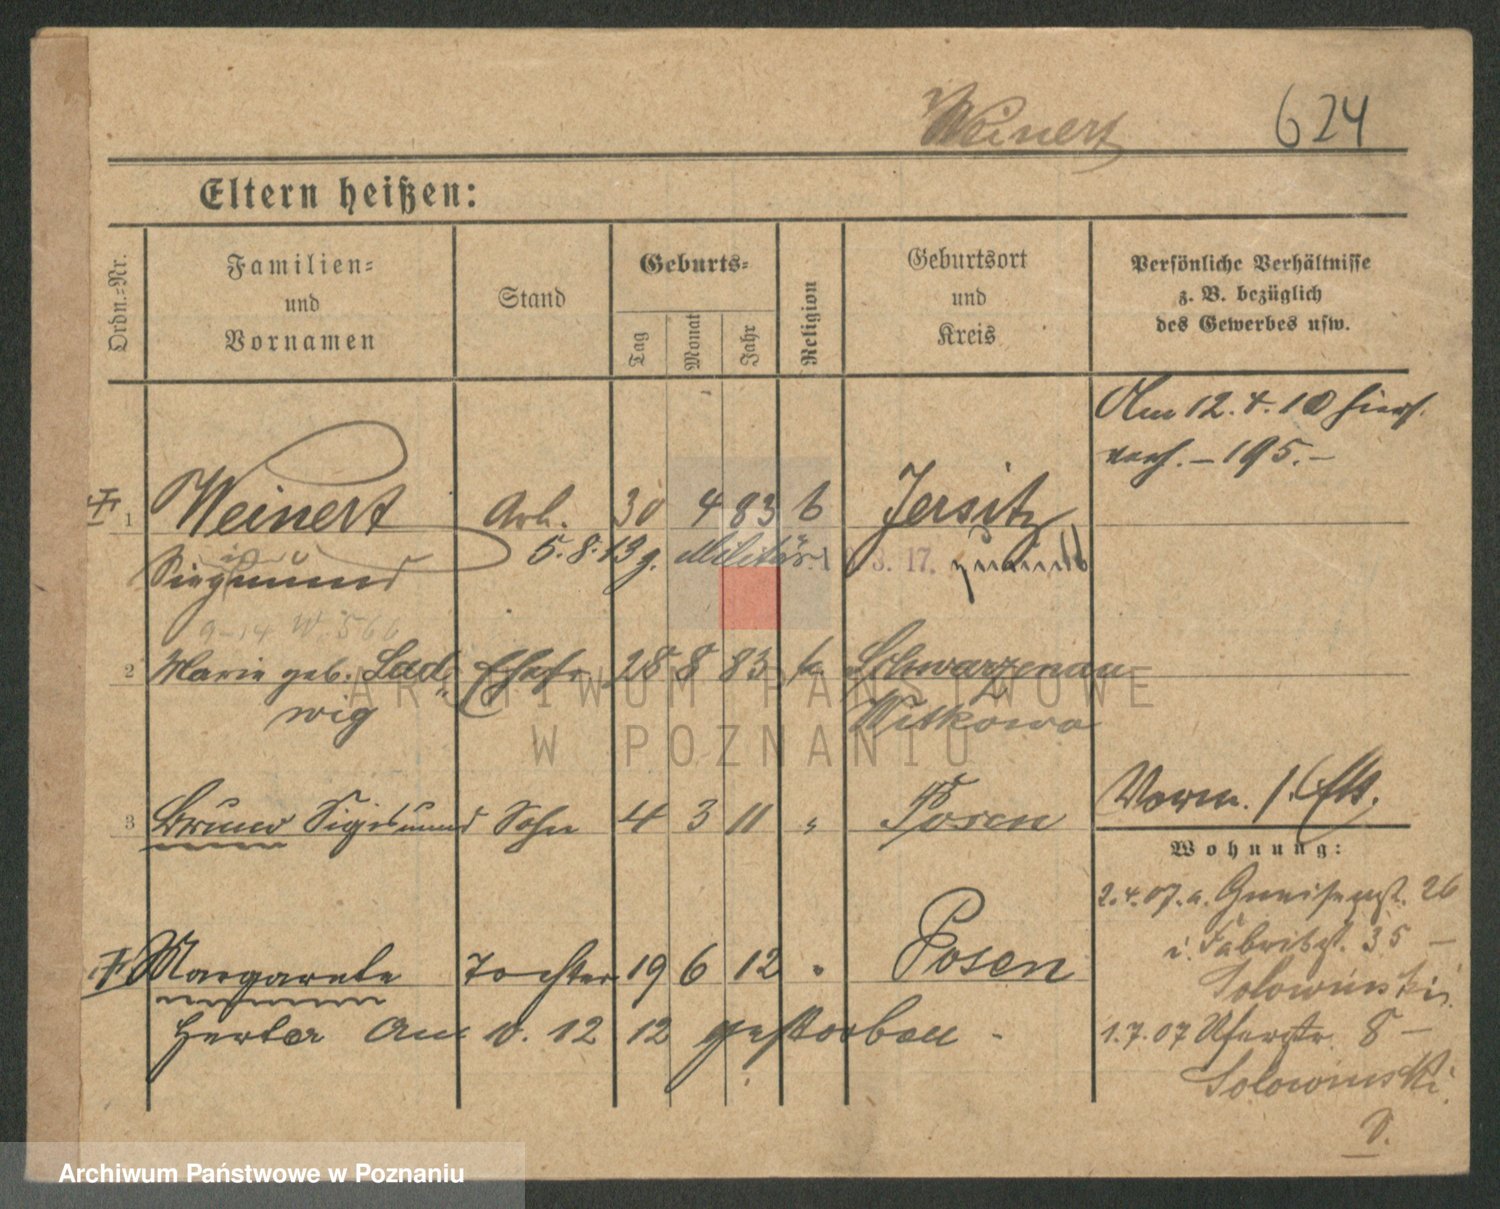 Weinert 624
Eltern heißen:
Ordn.-Nr.
Familien-
und
Vornamen
Stand
Geburts-
Tag
Monat
Jahr
Religion
Geburtsort
und
Kreis
Persönliche Verhältnisse
z. B. bezüglich
des Gewerbes usw.
Am 12. 4. 10 hier
verh. – 195. –
1 Weinert Arb. 30 4 83 k Jersitz
5. 8. 13 z. Militär 3. 17.
Siegmund
9-14 W 566
2 Marie geb. Lud- Ehefr. 28 8 83 k Schwarzenau
wig Witkowo
3 Bruno Sigismund Sohn 4 3 11 " Posen
Vorm.
Wohnung:
2. 4. 07. a. Gneisenaust. 26
i. Fabrikst. 35 –
Solowinski.
Margarete Tochter 19 6 12 " Posen
Herta Am 10. 12 12 gestorben -
1. 7. 07 Uferstr. 8 –
Solowinski.
ARCHIWUM PAŃSTWOWE
W POZNANIU
Archiwum Państwowe w Poznaniu